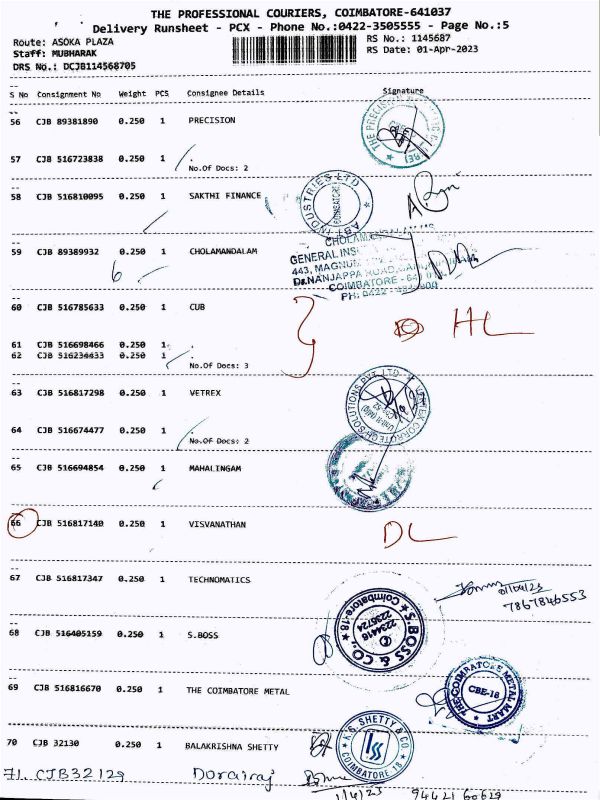 THE PROFESSIONAL COURIERS, COIMBATORE-641037
Delivery Runsheet - PCX - Phone No.:0422-3505555 - Page No.:5
Route: ASOKA PLAZA
RS No.: 1145687
Staff: MUBHARAK
RS Date: 01-Apr-2023
DRS No.: DCJB114568705
S No Consignment No Weight PCS Consignee Details Signature
56 CJB 89381890 0.250 1 PRECISION
57 CJB 516723838 0.250 1 .
No.Of Docs: 2
58 CJB 516810095 0.250 1 SAKTHI FINANCE
ABT INDUSTRIES LTD
COIMBATORE
59 CJB 89389932 0.250 1 CHOLAMANDALAM
GENERAL INS
443, MAGNUM
Dr.NANJAPPA ROAD,
COIMBATORE - 641 0
PH: 0422 -
6
60 CJB 516785633 0.250 1 CUB
HL
61 CJB 516698466 0.250 1 .
62 CJB 516234433 0.250 1 .
No.Of Docs: 3
63 CJB 516817298 0.250 1 VETREX
64 CJB 516674477 0.250 1 .
No.Of Docs: 2
65 CJB 516694854 0.250 1 MAHALINGAM
66 CJB 516817140 0.250 1 VISVANATHAN
DL
67 CJB 516817347 0.250 1 TECHNOMATICS
7867846553
68 CJB 516405159 0.250 1 S.BOSS
S.BOSS & CO.,
2234416
2235724
Coimbatore-18
69 CJB 516816670 0.250 1 THE COIMBATORE METAL
THE COIMBATORE METAL MART
CBE-18
70 CJB 32130 0.250 1 BALAKRISHNA SHETTY
K.B. SHETTY & CO
COIMBATORE 18
71. CJB32129 Dorairaj
1/4/23 94421 60629